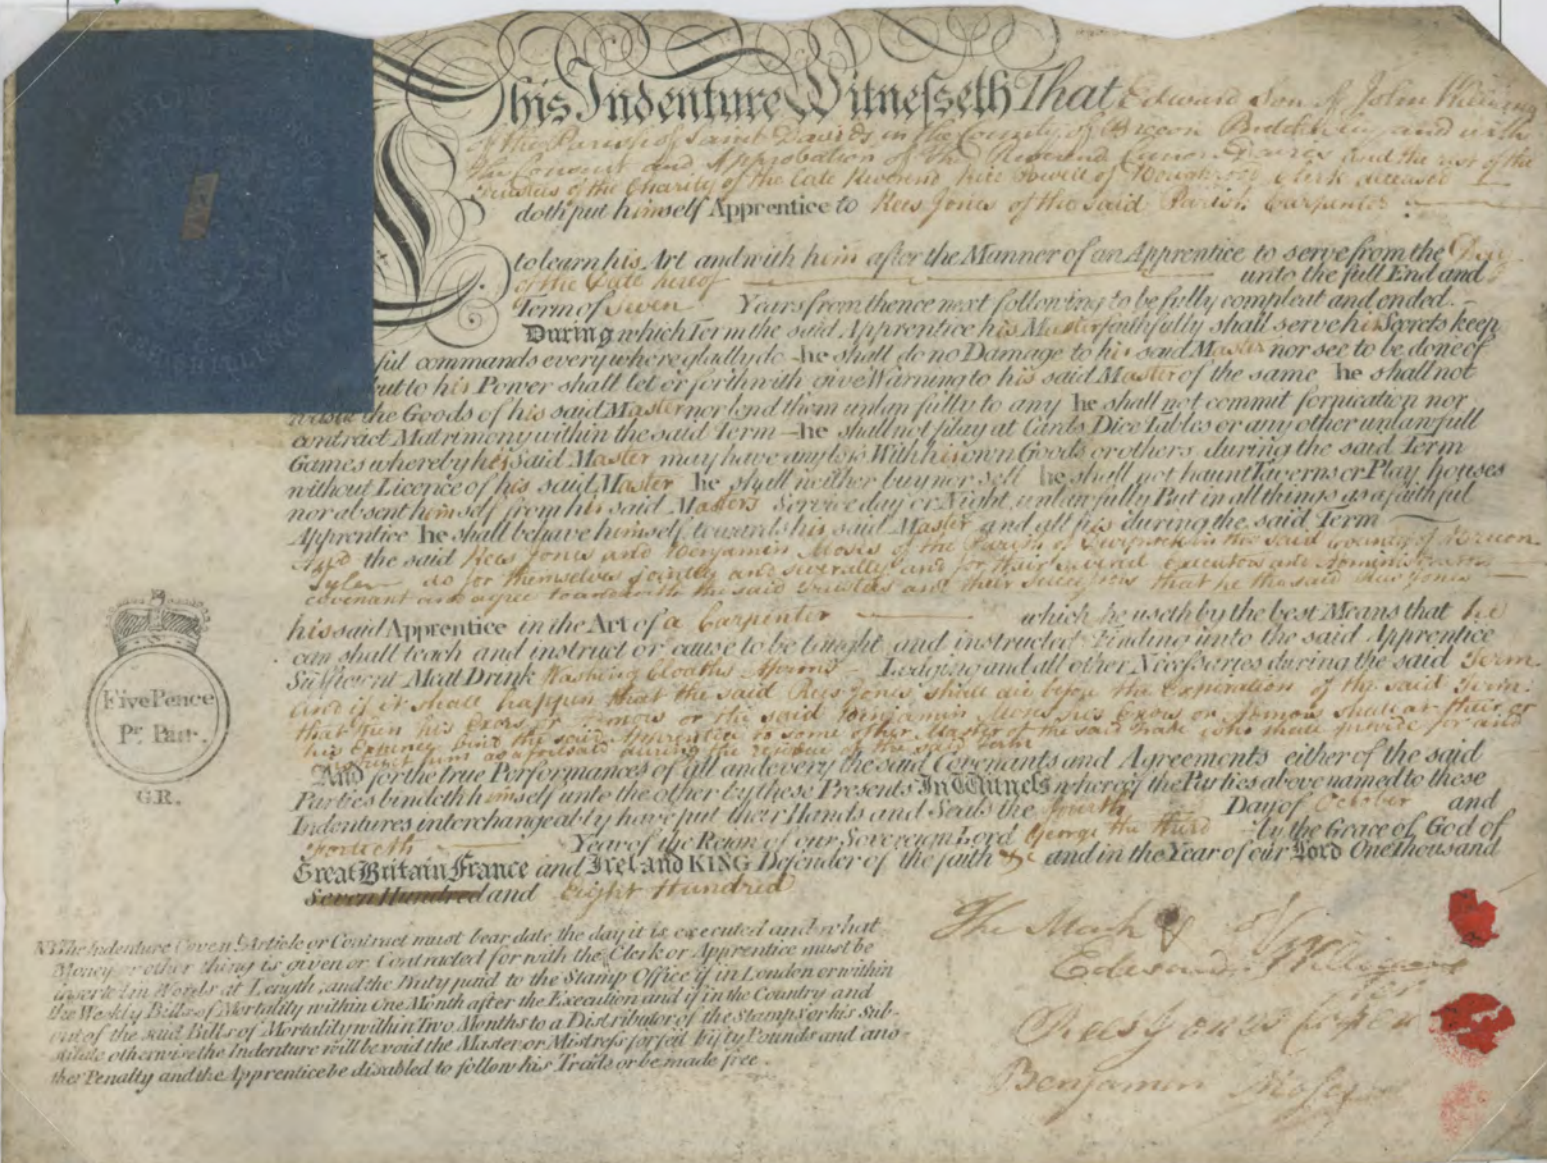 This Indenture Witnesseth That Edward Son of John Williams
of the Parish of Saint Davids in the County of Brecon and with
the Consent and Approbation of the Reverend and the rest of the
Trustees of the Charity of the late Reverend Clerk deceased
doth put himself Apprentice to Rees Jones of the said Parish Carpenter
to learn his Art and with him after the Manner of an Apprentice to serve from the Day
of the Date hereof unto the full End and
Term of Seven Years from thence next following to be fully compleat and ended.
During which Term the said Apprentice his Master faithfully shall serve his Secrets keep
ful commands every where gladly do he shall do no Damage to his said Master nor see to be done of
but to his Power shall let or forthwith give Warning to his said Master of the same he shall not
waste the Goods of his said Master nor lend them unlawfully to any he shall not commit fornication nor
contract Matrimony within the said Term he shall not play at Cards Dice Tables or any other unlawfull
Games whereby his Said Master may have any loss With his own Goods or others during the said Term
without Licence of his said Master he shall neither buy nor sell he shall not haunt Taverns or Play houses
nor absent himself from his said Masters Service day or Night unlawfully But in all things as a faithful
Apprentice he shall behave himself towards his said Master and all his during the said Term
And the said Rees Jones and Benjamin Moses of the Parish of in the said County of Brecon
Tyler do for themselves jointly and severally and for their several Executors and Administrators
covenant and agree to and with the said Trustees and their Successors that he the said Rees Jones
his said Apprentice in the Art of a Carpenter which he useth by the best Means that he
can shall teach and instruct or cause to be taught and instructed Finding unto the said Apprentice
Sufficient Meat Drink Washing Cloaths Aprons Lodging and all other Necessaries during the said Term.
And if it shall happen that the said Rees Jones shall die before the Expiration of the said Term.
that then his Exors or Admors or the said Benjamin Moses his Exors or Admors shall at their or
his Expence bind the said Apprentice to some other Master of the said Trade who shall provide for and
instruct him as aforesaid during the residue of the said Term
And for the true Performances of all and every the said Covenants and Agreements either of the said
Parties bindeth himself unto the other by these Presents In Witness whereof the Parties above named to these
Indentures interchangeably have put their Hands and Seals the fourth Day of October and
fortieth Year of the Reign of our Sovereign Lord George the third by the Grace of God of
Great Britain France and Ireland KING Defender of the faith &c and in the Year of our Lord One thousand
Seven Hundred and Eight Hundred
Five Pence
Pr. Pair.
G.R.
NB The Indenture Covent. Article or Contract must bear date the day it is executed and what
Money or other thing is given or Contracted for with the Clerk or Apprentice must be
inserted in Words at Length and the Duty paid to the Stamp Office if in London or within
the Weekly Bills of Mortality within One Month after the Execution and if in the Country and
out of the said Bills of Mortality within Two Months to a Distributor of the Stamps or his Sub-
stitute otherwise the Indenture will be void the Master or Mistress forfeit Fifty Pounds and ano-
ther Penalty and the Apprentice be disabled to follow his Trade or be made free.
The Mark of
Edward Williams
Rees Jones
Benjamin Moses